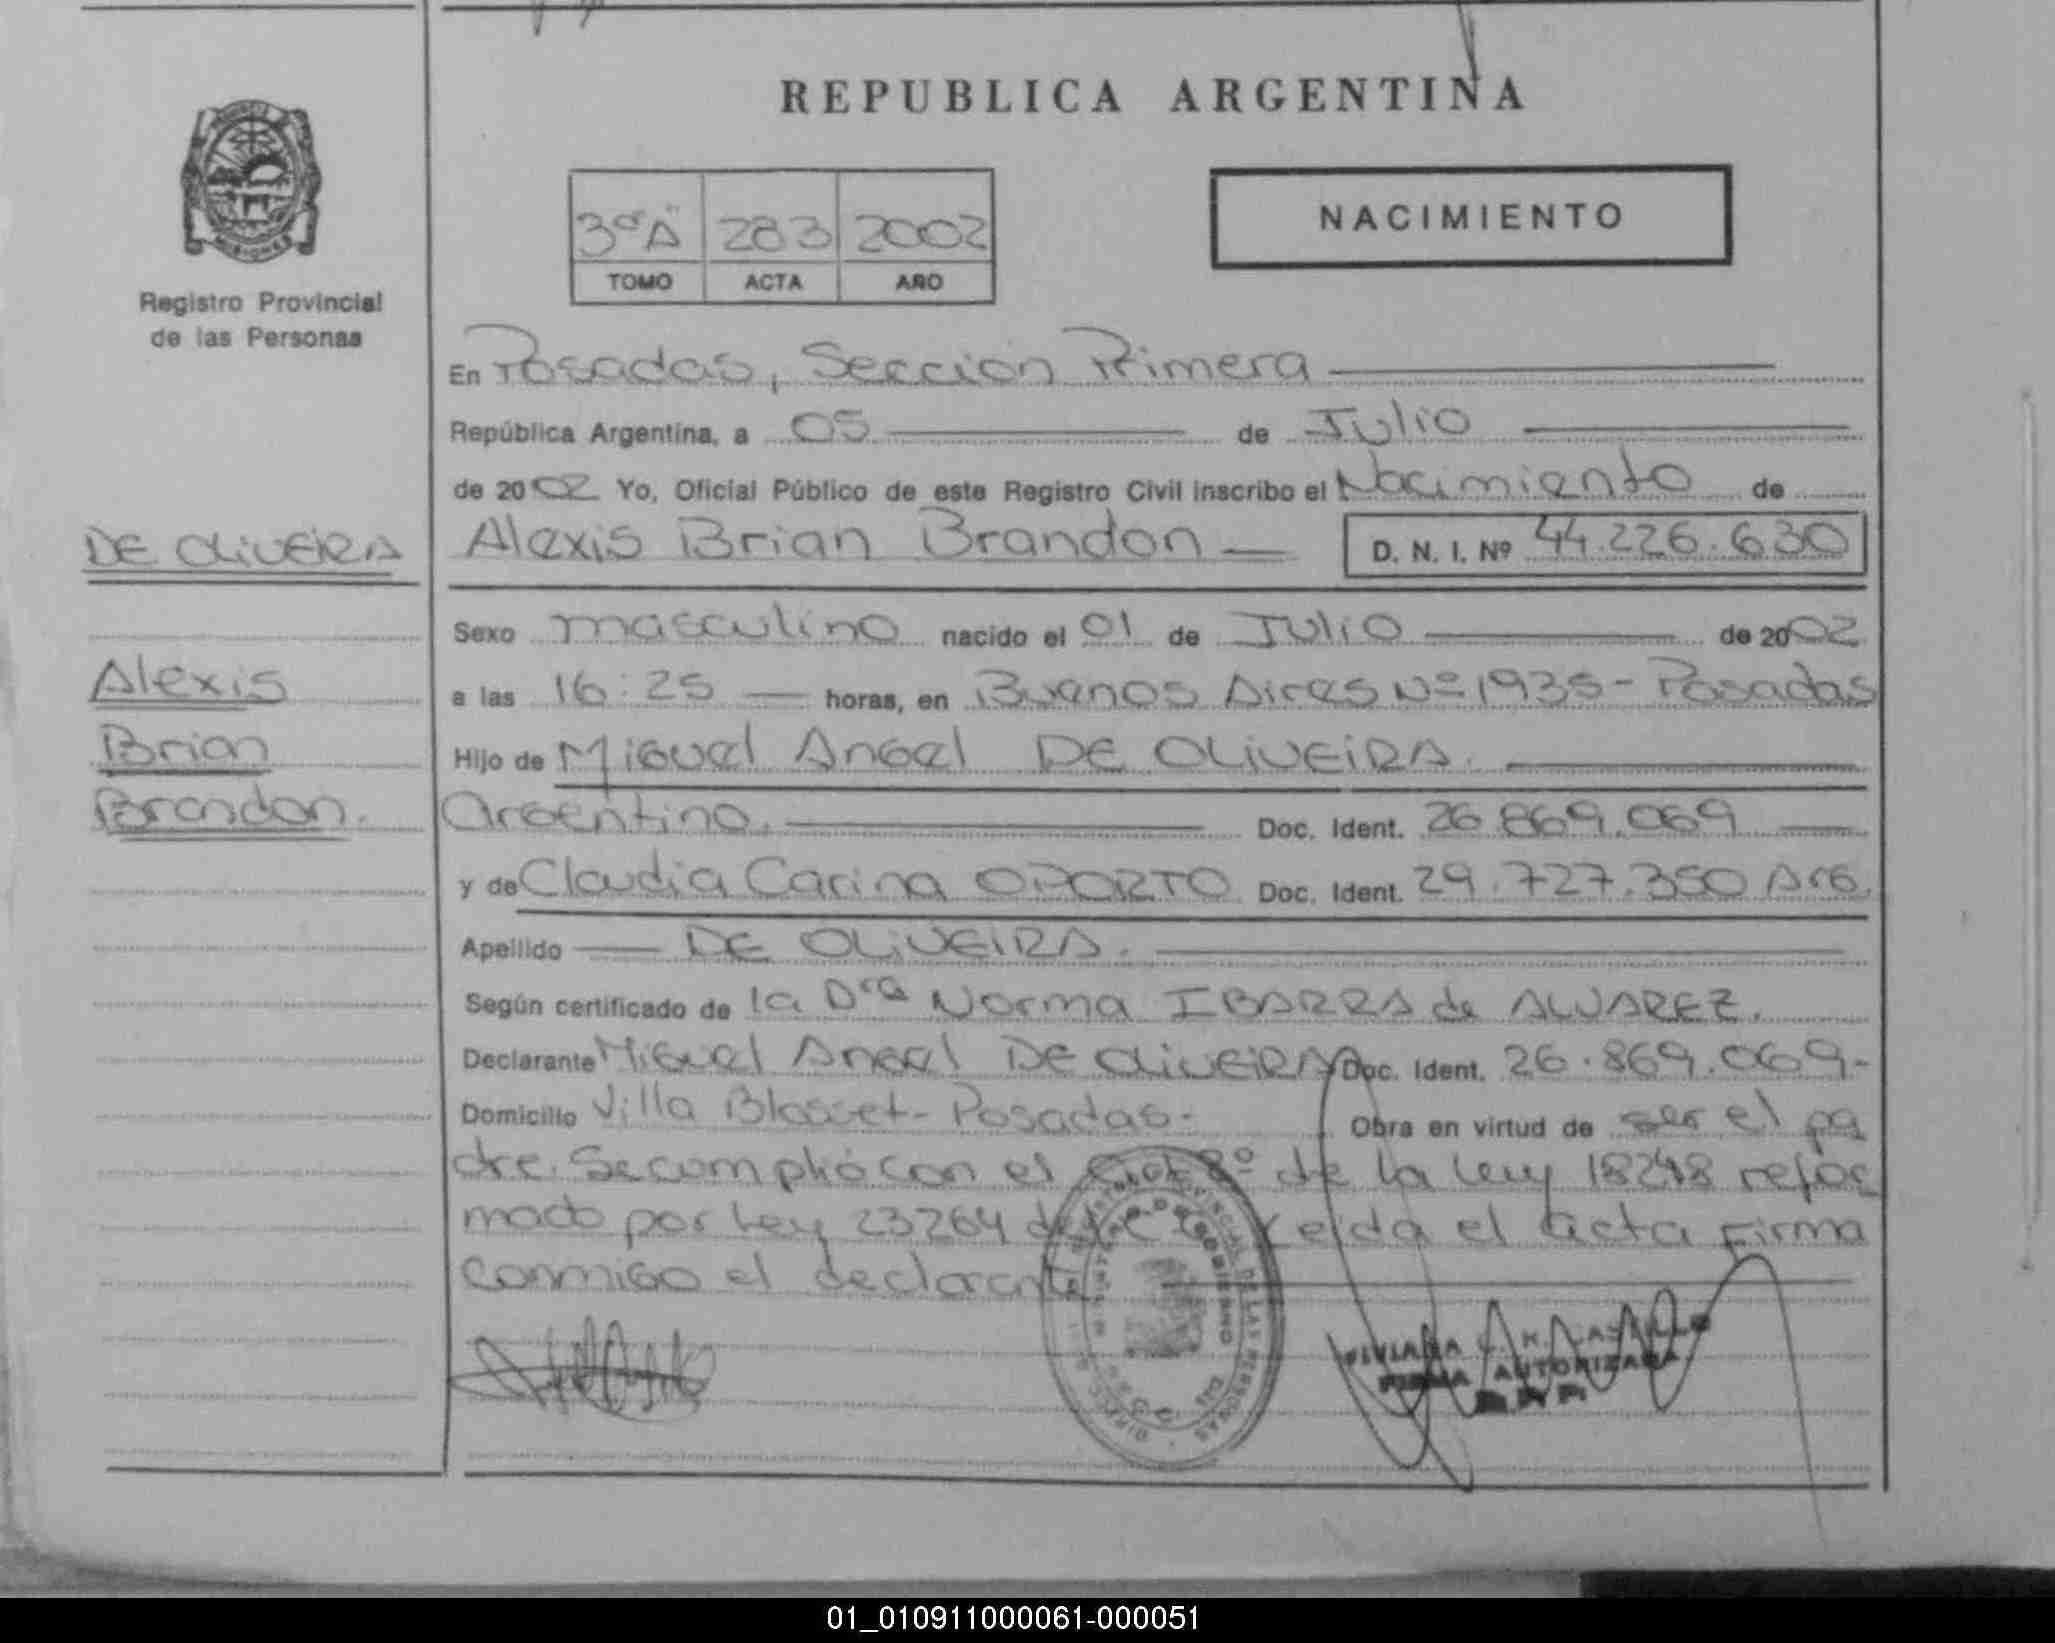 REPUBLICA ARGENTINA
3º "A" 283 2002
TOMO ACTA AÑO
NACIMIENTO
Registro Provincial
de las Personas
En Posadas, Sección Primera
República Argentina, a 05 de Julio
de 2002 Yo, Oficial Público de este Registro Civil inscribo el Nacimiento de
Alexis Brian Brandon D. N. I. Nº 44.226.630
DE OLIVEIRA
Alexis
Brian
Brandon.
Sexo masculino nacido el 01 de Julio de 2002
a las 16:25 horas, en Buenos Aires Nº 1935 - Posadas
Hijo de Miguel Angel DE OLIVEIRA.
Argentino. Doc. Ident. 26.869.069
y de Claudia Carina OPORTO Doc. Ident. 29.727.350 Arg.
Apellido DE OLIVEIRA.
Según certificado de la Dra Norma IBARRA de ALVAREZ.
Declarante Miguel Angel DE OLIVEIRA Doc. Ident. 26.869.069-
Domicilio Villa Blosset - Posadas - Obra en virtud de ser el pa
dre. Se cumplió con el Art 8º de la Ley 18248 refor
mado por Ley 23264 Leida el acta Firma
conmigo el declarante
FIRMA AUTORIZADA
01_010911000061-000051